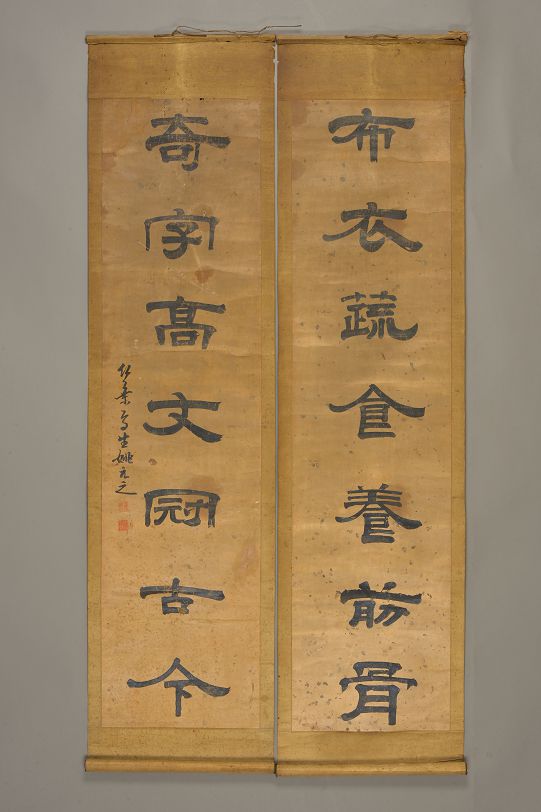 布衣蔬食養筋骨
奇字高文冠古今
竹葉亭生姚元之